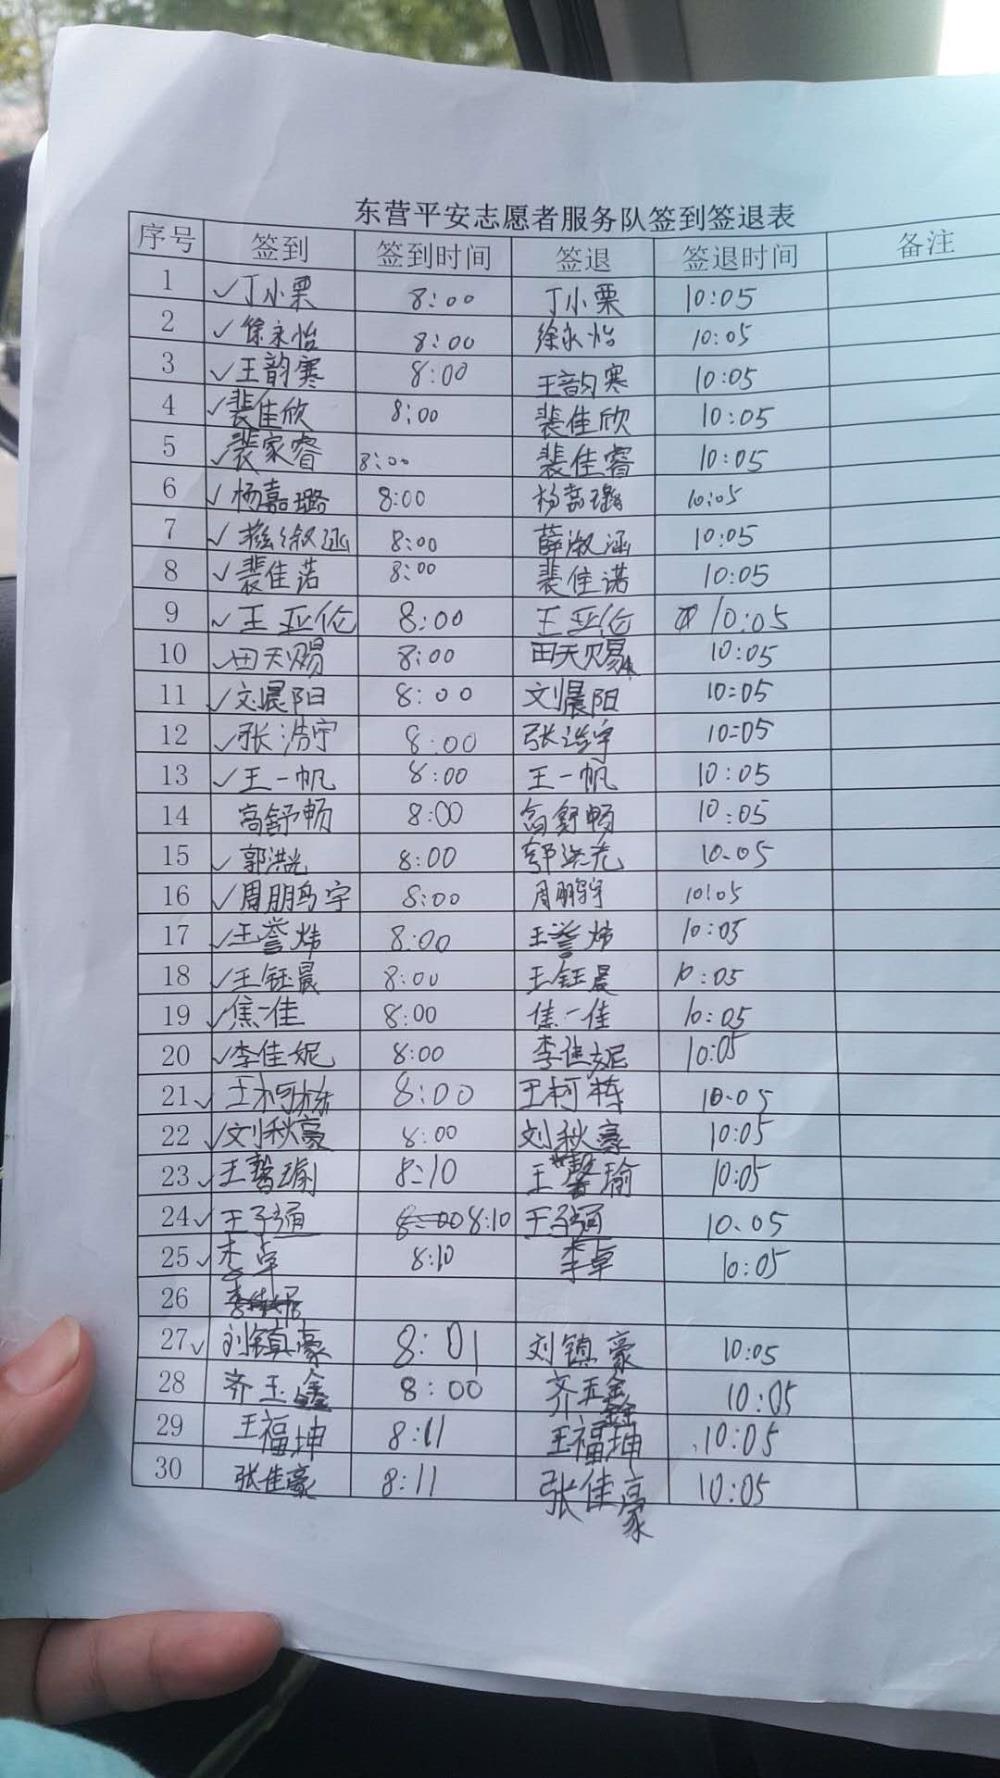 东营平安志愿者服务队签到签退表
序号 签到 签到时间 签退 签退时间 备注
1 ✓丁小栗 8:00 丁小栗 10:05
2 ✓徐永怡 8:00 徐永怡 10:05
3 ✓王韵寒 8:00 王韵寒 10:05
4 ✓裴佳欣 8:00 裴佳欣 10:05
5 ✓裴家睿 8:00 裴佳睿 10:05
6 ✓杨嘉璐 8:00 杨嘉璐 10:05
7 ✓ 8:00 薛淑涵 10:05
8 ✓裴佳诺 8:00 裴佳诺 10:05
9 ✓王亚伦 8:00 王亚伦 10:05
10 ✓田天赐 8:00 田天赐 10:05
11 ✓刘晨阳 8:00 刘晨阳 10:05
12 ✓张浩宇 8:00 张浩宇 10:05
13 ✓王一帆 8:00 王一帆 10:05
14 高舒畅 8:00 高舒畅 10:05
15 ✓郭洪光 8:00 郭洪光 10.05
16 ✓周朋鸟宇 8:00 周鹏宇 10:05
17 ✓王誉炜 8:00 王誉炜 10:05
18 ✓王钰晨 8:00 王钰晨 10:05
19 ✓焦一佳 8:00 焦一佳 10:05
20 ✓李佳妮 8:00 李佳妮 10:05
21 ✓王柯栋 8:00 王柯栋 10.05
22 ✓刘秋豪 8:00 刘秋豪 10:05
23 ✓王馨瑜 8:10 王馨瑜 10:05
24 ✓王子涵 8:00 8:10 王子涵 10.05
25 ✓李卓 8:10 李卓 10:05
26
27 ✓刘镇豪 8:01 刘镇豪 10:05
28 齐玉鑫 8:00 齐玉鑫 10:05
29 王福坤 8:11 王福坤 10:05
30 张佳豪 8:11 张佳豪 10:05